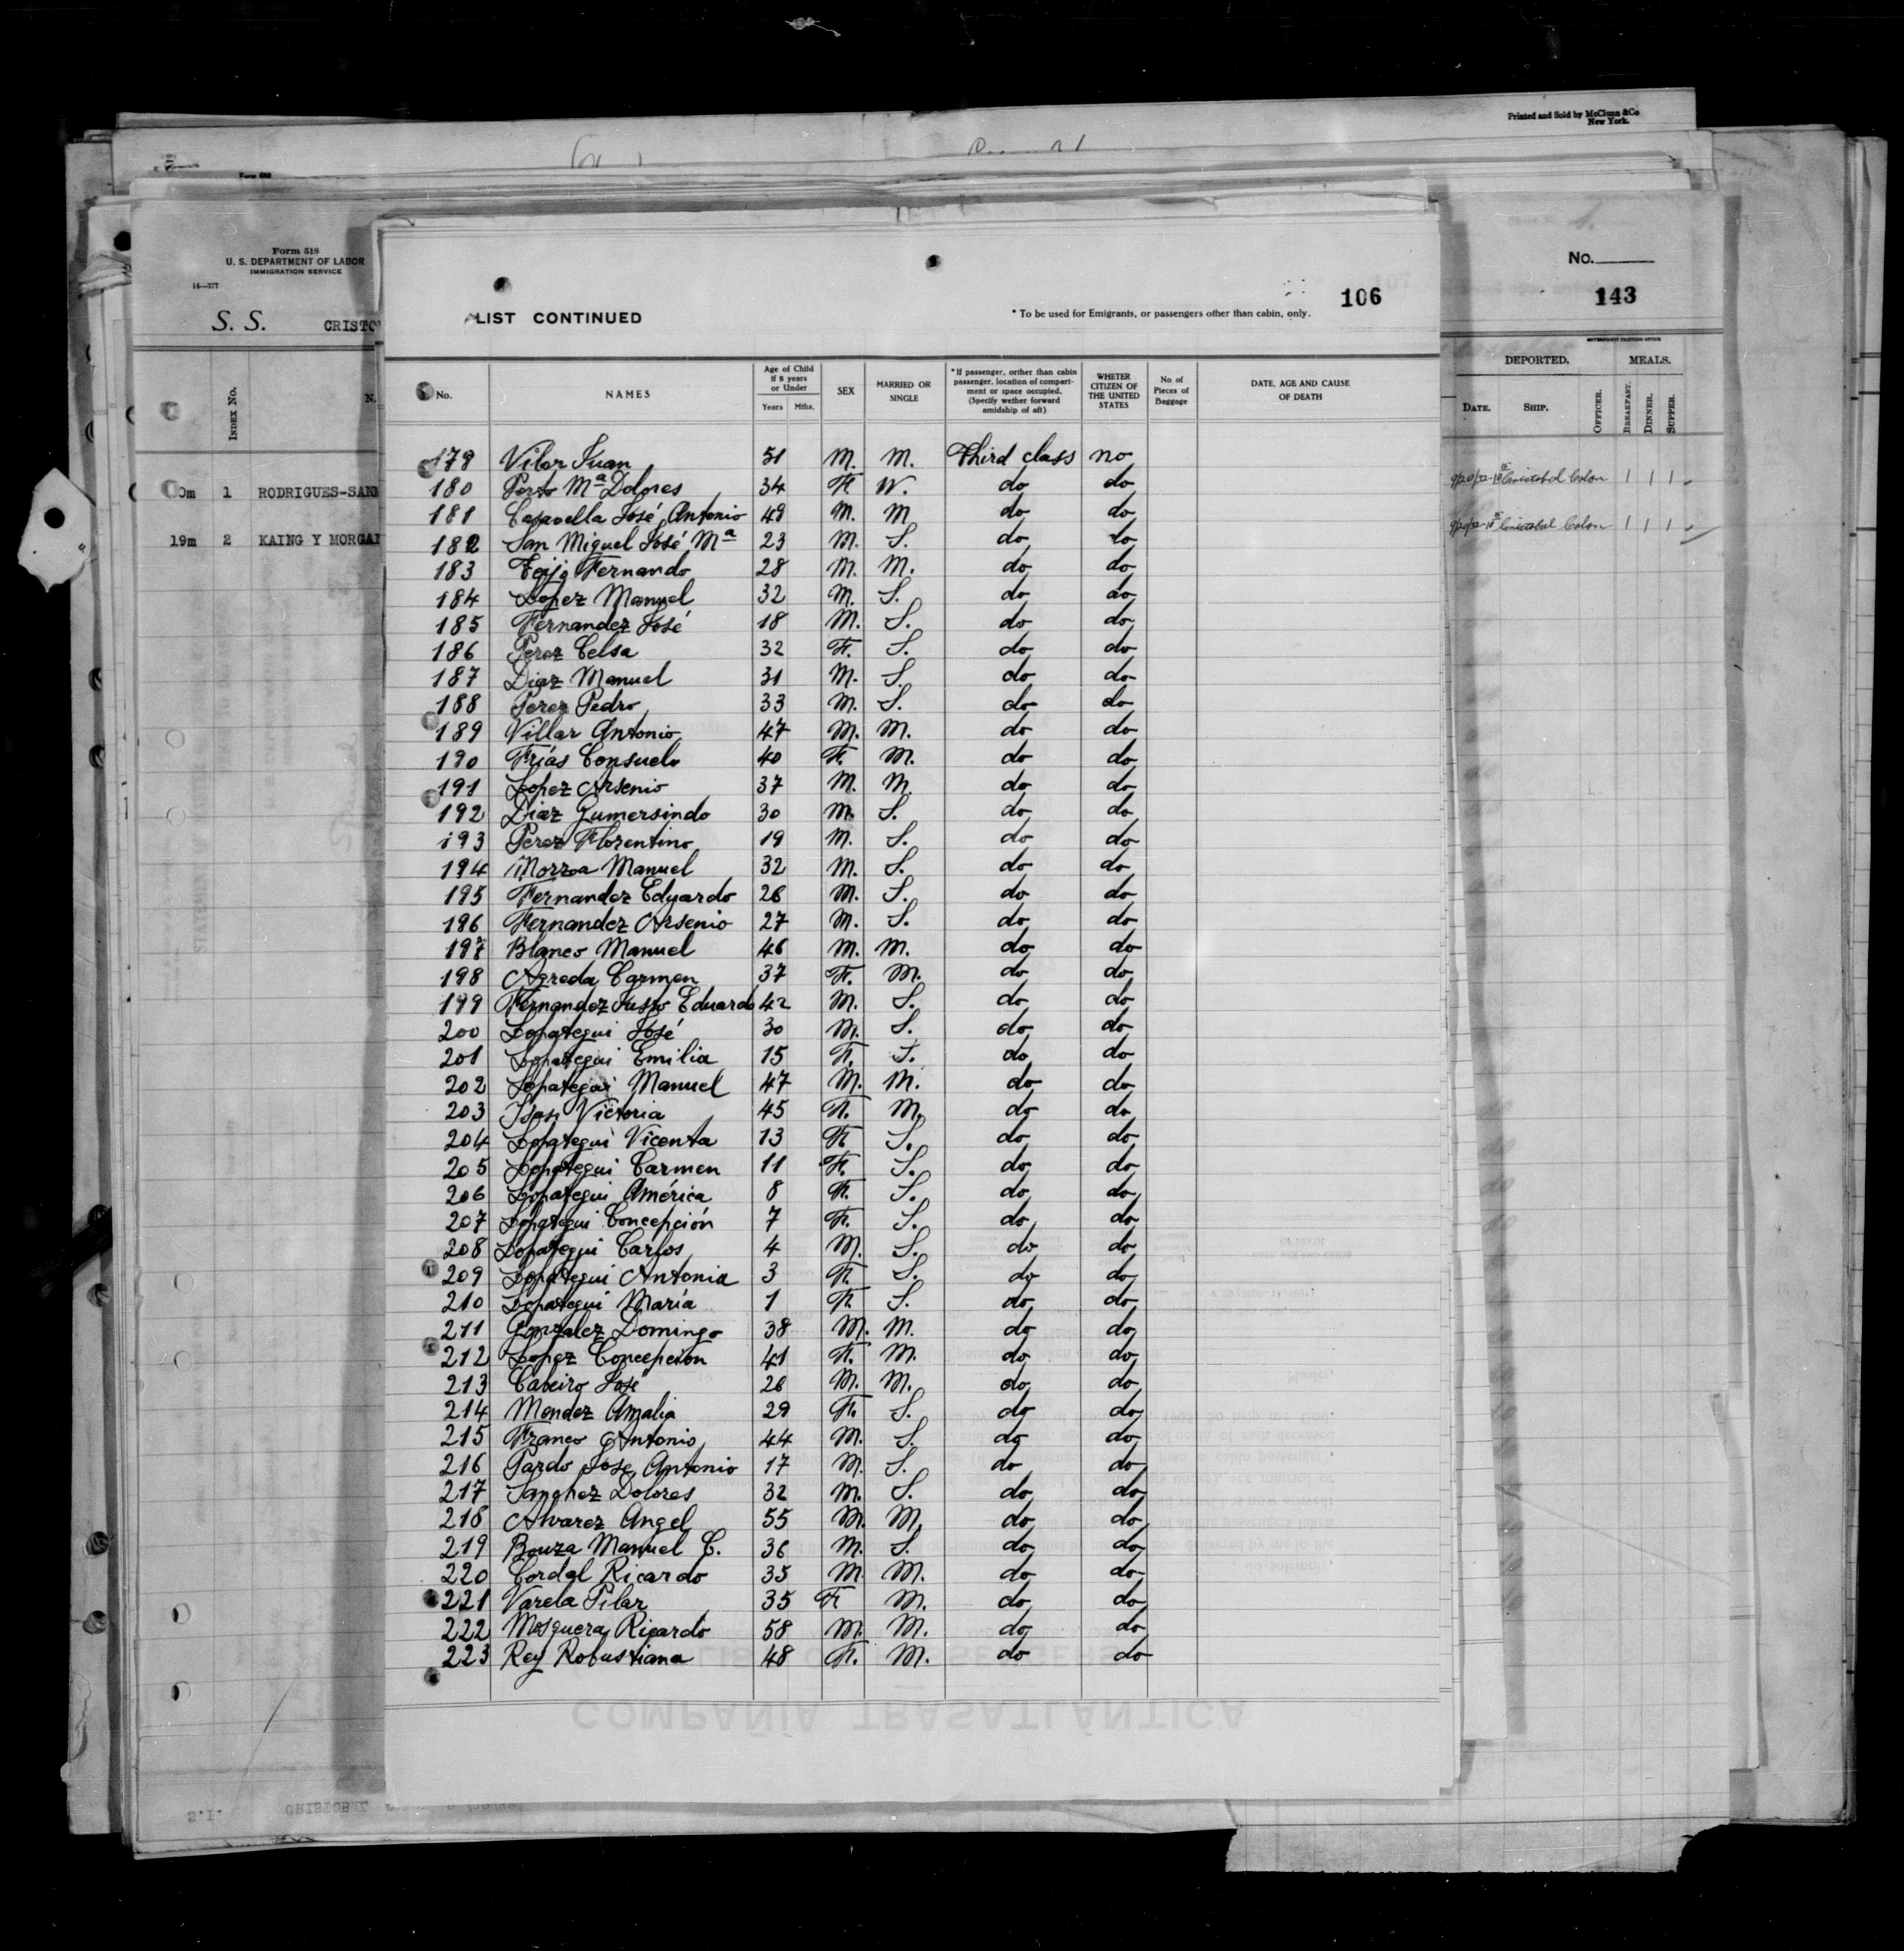 Printed and Sold by McClunn &Co
New York.
Form 518
U. S. DEPARTMENT OF LABOR
IMMIGRATION SERVICE
S. S. CRISTO
INDEX No.
N
1 RODRIGUES-SAN
19m 2 KAING Y MORGA
LIST CONTINUED
* To be used for Emigrants, or passengers other than cabin, only.
106
No.
NAMES
Age of Child if 8 years or Under
Years Mths.
SEX
MARRIED OR SINGLE
*If passenger, orther than cabin passenger, location of compartment or space occupied. (Specify wether forward amidship of aft)
WHETER CITIZEN OF THE UNITED STATES
No of Pieces of Baggage
DATE, AGE AND CAUSE OF DEATH
179 Vilar Juan 51 M. M. Third class no
180 Porto Mª Dolores 34 F. W. do do
181 Casavella José Antonio 49 M. M do do
182 San Miguel José Mª 23 M. S. do do
183 Teijo Fernando 28 M. M. do do
184 Lopez Manuel 32 M. S. do do
185 Fernandez José 18 M. S. do do
186 Perez Celsa 32 F. S. do do
187 Diaz Manuel 31 M. S. do do
188 Perez Pedro 33 M. S. do do
189 Villar Antonio 47 M. M. do do
190 Frías Consuelo 40 F. M. do do
191 Lopez Arsenio 37 M. M. do do
192 Diaz Gumersindo 30 M. S. do do
193 Perez Florentino 19 M. S. do do
194 Morzoa Manuel 32 M. S. do do
195 Fernandez Eduardo 26 M. S. do do
196 Fernandez Arsenio 27 M. S. do do
197 Blanco Manuel 46 M. M. do do
198 Agreda Carmen 37 F. M. do do
199 Fernandez Justo Eduardo 42 M. S. do do
200 Lopategui José 30 M. S. do do
201 Lopategui Emilia 15 F. S. do do
202 Lopategui Manuel 47 M. M. do do
203 Isasi Victoria 45 F. M. do do
204 Lopategui Vicenta 13 F. S. do do
205 Lopategui Carmen 11 F. S. do do
206 Lopategui América 8 F. S. do do
207 Lopategui Concepción 7 F. S. do do
208 Lopategui Carlos 4 M. S. do do
209 Lopategui Antonia 3 F. S. do do
210 Lopategui María 1 F. S. do do
211 Gonzalez Domingo 38 M. M. do do
212 Lopez Concepción 41 F. M. do do
213 Cabeiro José 26 M. M. do do
214 Mendez Amalia 29 F. S. do do
215 Franco Antonio 44 M. S. do do
216 Pardo Jose Antonio 17 M. S. do do
217 Sanchez Dolores 32 M. S. do do
218 Alvarez Angel 55 M. M. do do
219 Bouza Manuel C. 36 M. S. do do
220 Cordal Ricardo 35 M. M. do do
221 Varela Pilar 35 F. M. do do
222 Mosquera Ricardo 58 M. M. do do
223 Rey Robustiana 48 F. M. do do
COMPAÑÍA TRASATLÁNTICA
No.
143
DEPORTED.
MEALS.
DATE.
SHIP.
OFFICER.
BREAKFAST.
DINNER.
SUPPER.
Cristobal Colon 1 1 1
Cristobal Colon 1 1 1